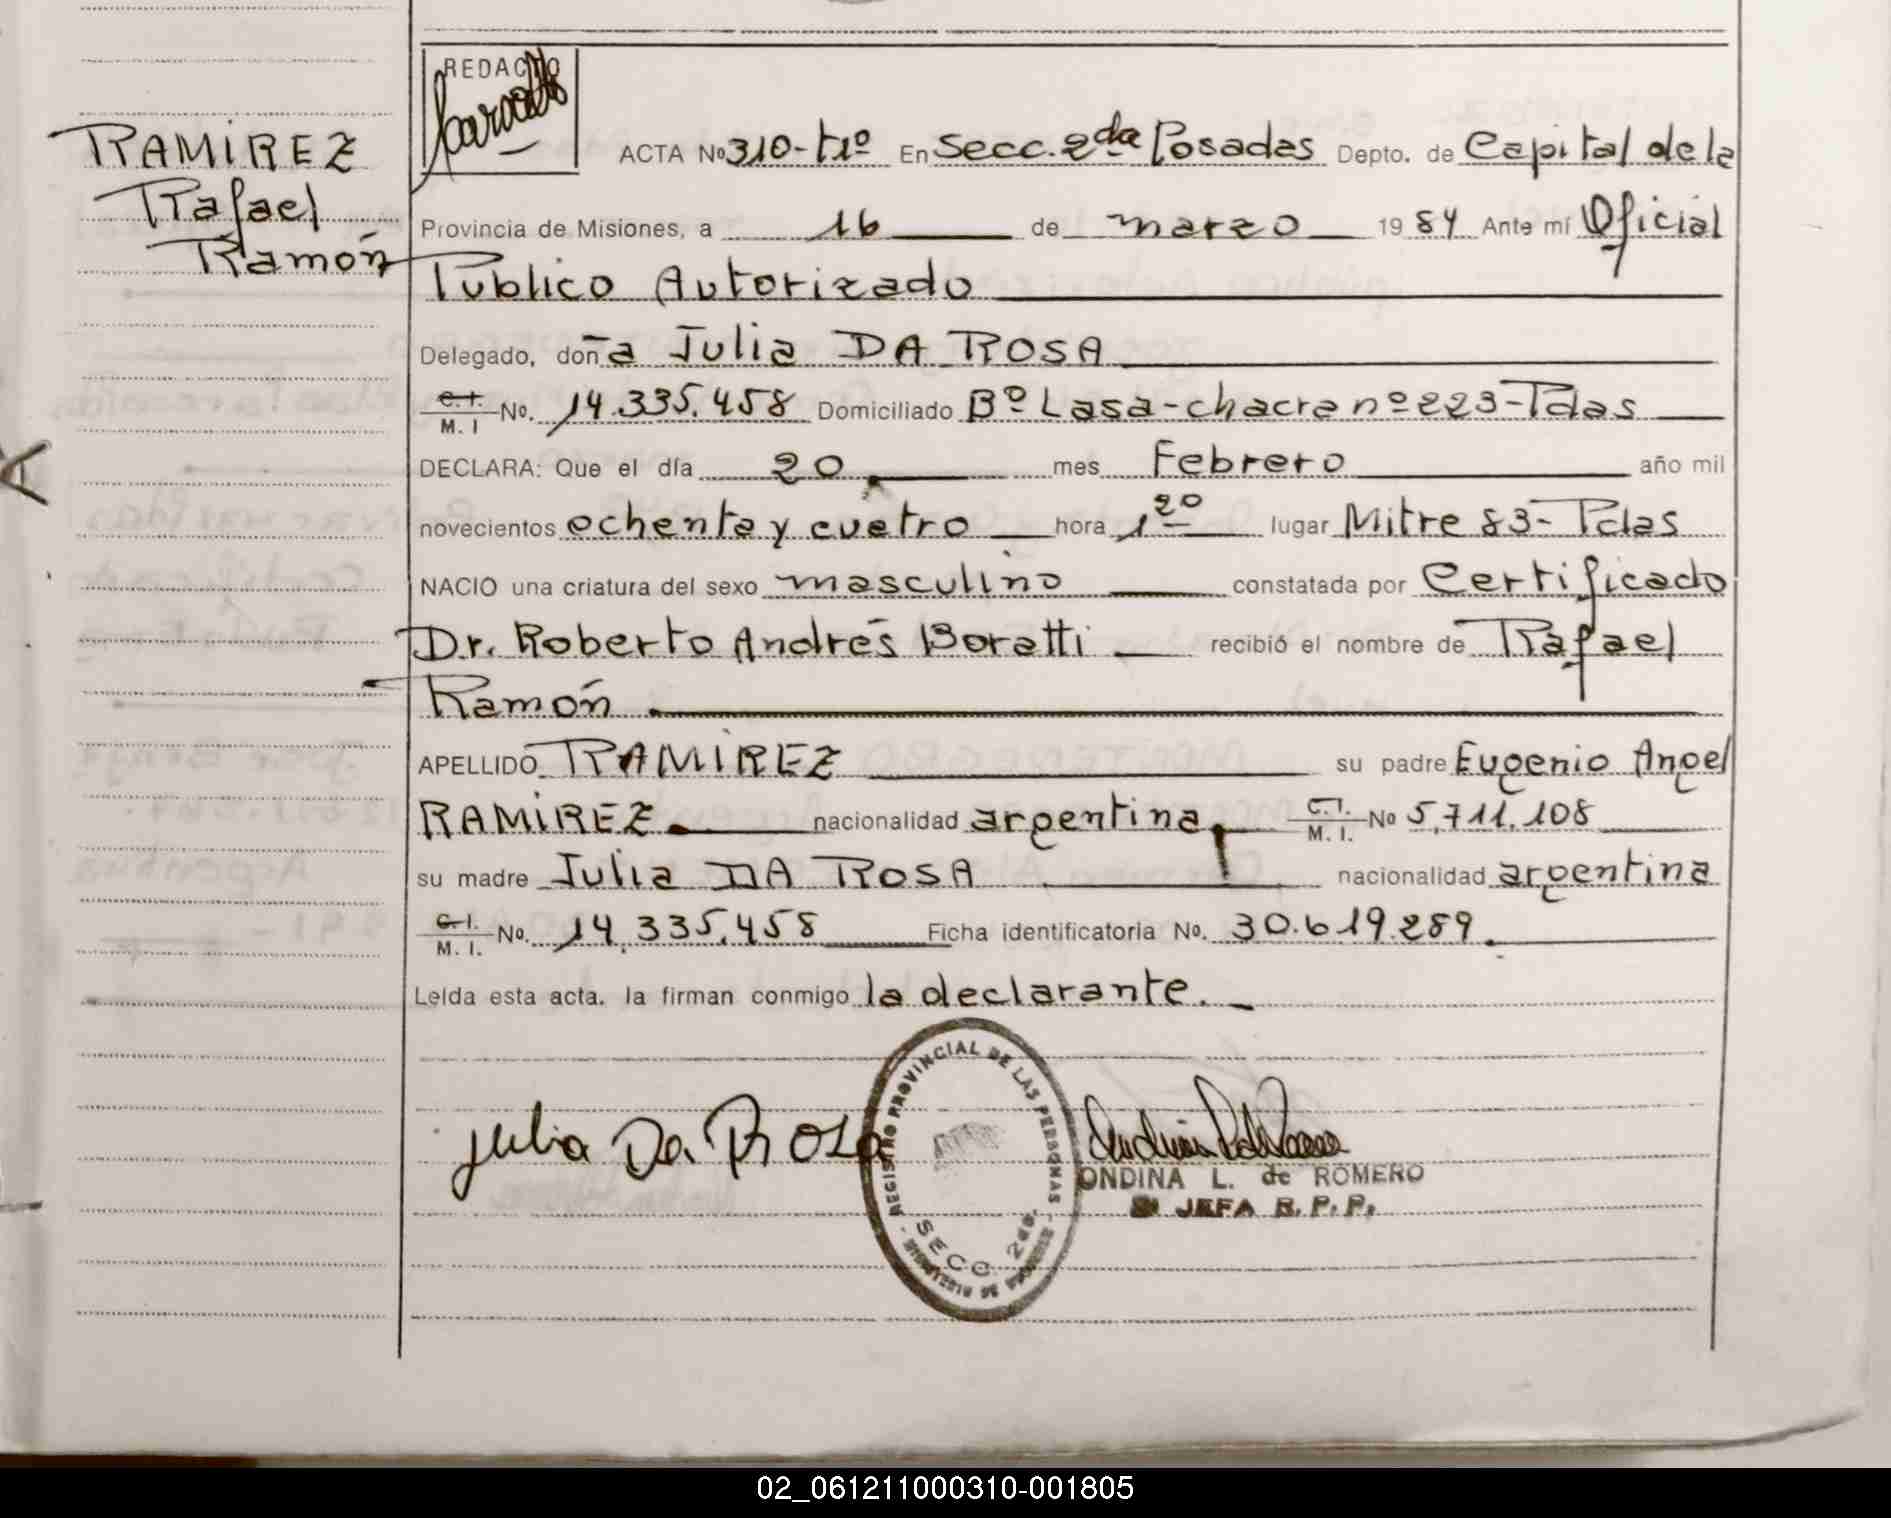 RAMIREZ
Rafael
Ramón
REDACTO
ACTA Nº 310-tº1º En Secc. 2da Posadas Depto. de Capital de la
Provincia de Misiones, a 16 de marzo 1984 Ante mí Oficial
Publico Autorizado
Delegado, don a Julia DA ROSA
C.I. M. I No. 14.335.458 Domiciliado Bº Lasa-chacra nº 223-Pdas
DECLARA: Que el día 20 mes Febrero año mil
novecientos ochenta y cuatro hora 1 20 lugar Mitre 83-Pdas
NACIO una criatura del sexo masculino constatada por Certificado
Dr. Roberto Andrés Boratti recibió el nombre de Rafael
Ramón
APELLIDO RAMIREZ su padre Eugenio Angel
RAMIREZ. nacionalidad argentina, C.I. M. I. No 5.711.108
su madre Julia DA ROSA nacionalidad argentina
C.I. M. I. No. 14.335.458 Ficha identificatoria No. 30.619.289.
Leída esta acta, la firman conmigo la declarante.
Julia Da Rosa
REGISTRO PROVINCIAL DE LAS PERSONAS
SECC 2da.
ONDINA L. de ROMERO
JEFA R. P. P.
02_061211000310-001805